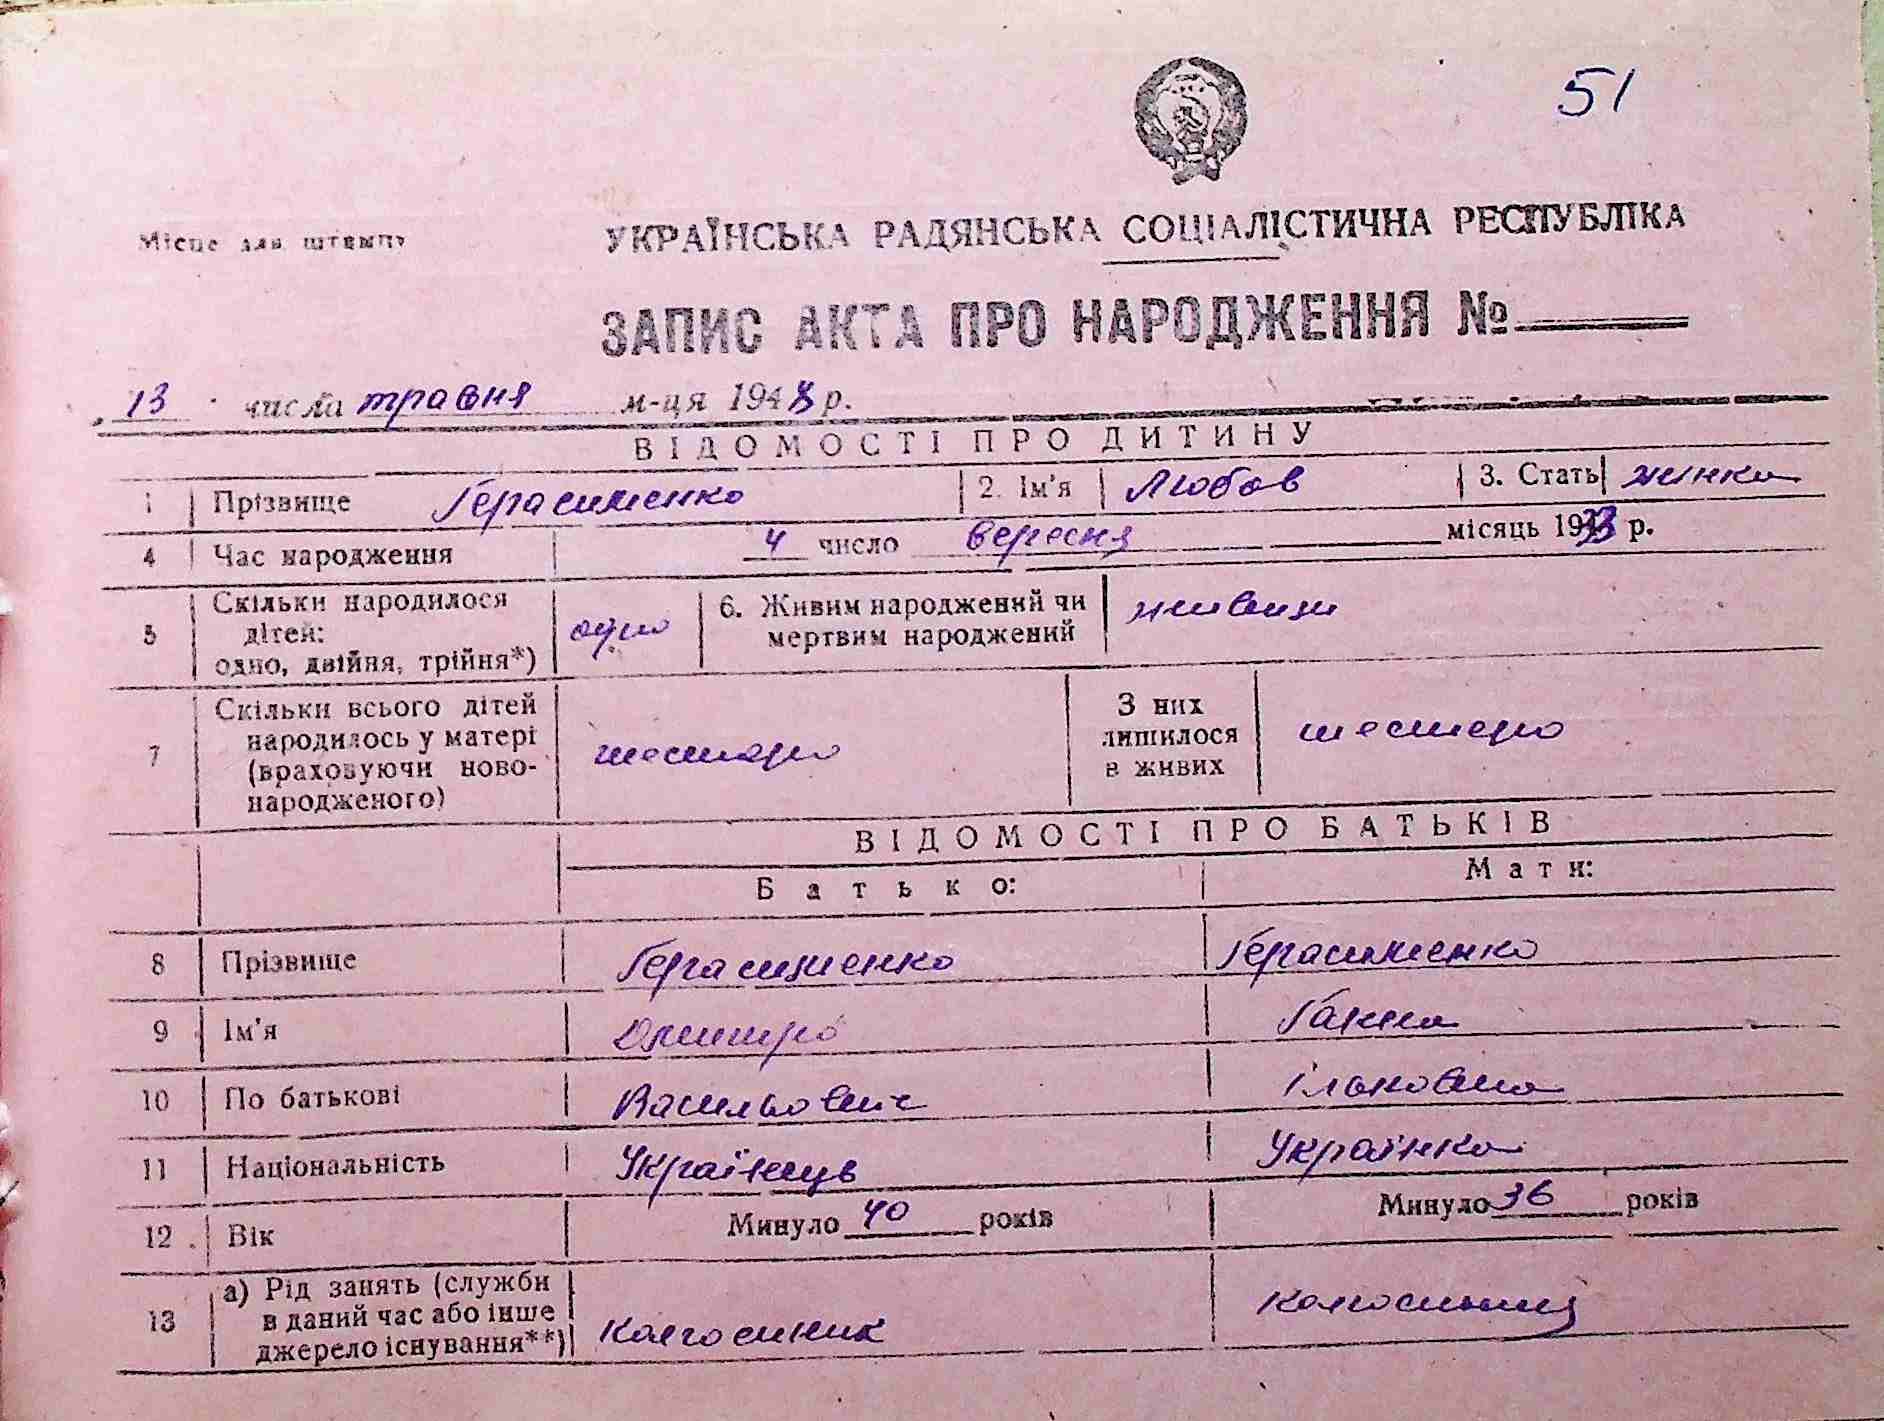 51
Місце для штампу
УКРАЇНСЬКА РАДЯНСЬКА СОЦІАЛІСТИЧНА РЕСПУБЛІКА
ЗАПИС АКТА ПРО НАРОДЖЕННЯ №
13 числа травня м-ця 1948 р.
ВІДОМОСТІ ПРО ДИТИНУ
1 Прізвище Герасименко 2. Ім'я Любов 3. Стать жінка
4 Час народження 4 число вересня місяць 19 р.
5 Скільки народилося дітей: одно, двійня, трійня*) одно 6. Живим народжений чи мертвим народжений живим
7 Скільки всього дітей народилось у матері (враховуючи ново-народженого) шестеро З них лишилося в живих шестеро
ВІДОМОСТІ ПРО БАТЬКІВ
Батько: Мати:
8 Прізвище Герасименко Герасименко
9 Ім'я Дмитро Ганна
10 По батькові Васильович Ільковна
11 Національність Українець Українка
12. Вік Минуло 40 років Минуло 36 років
13 а) Рід занять (служби в даний час або інше джерело існування**) Колгоспник колгоспниця